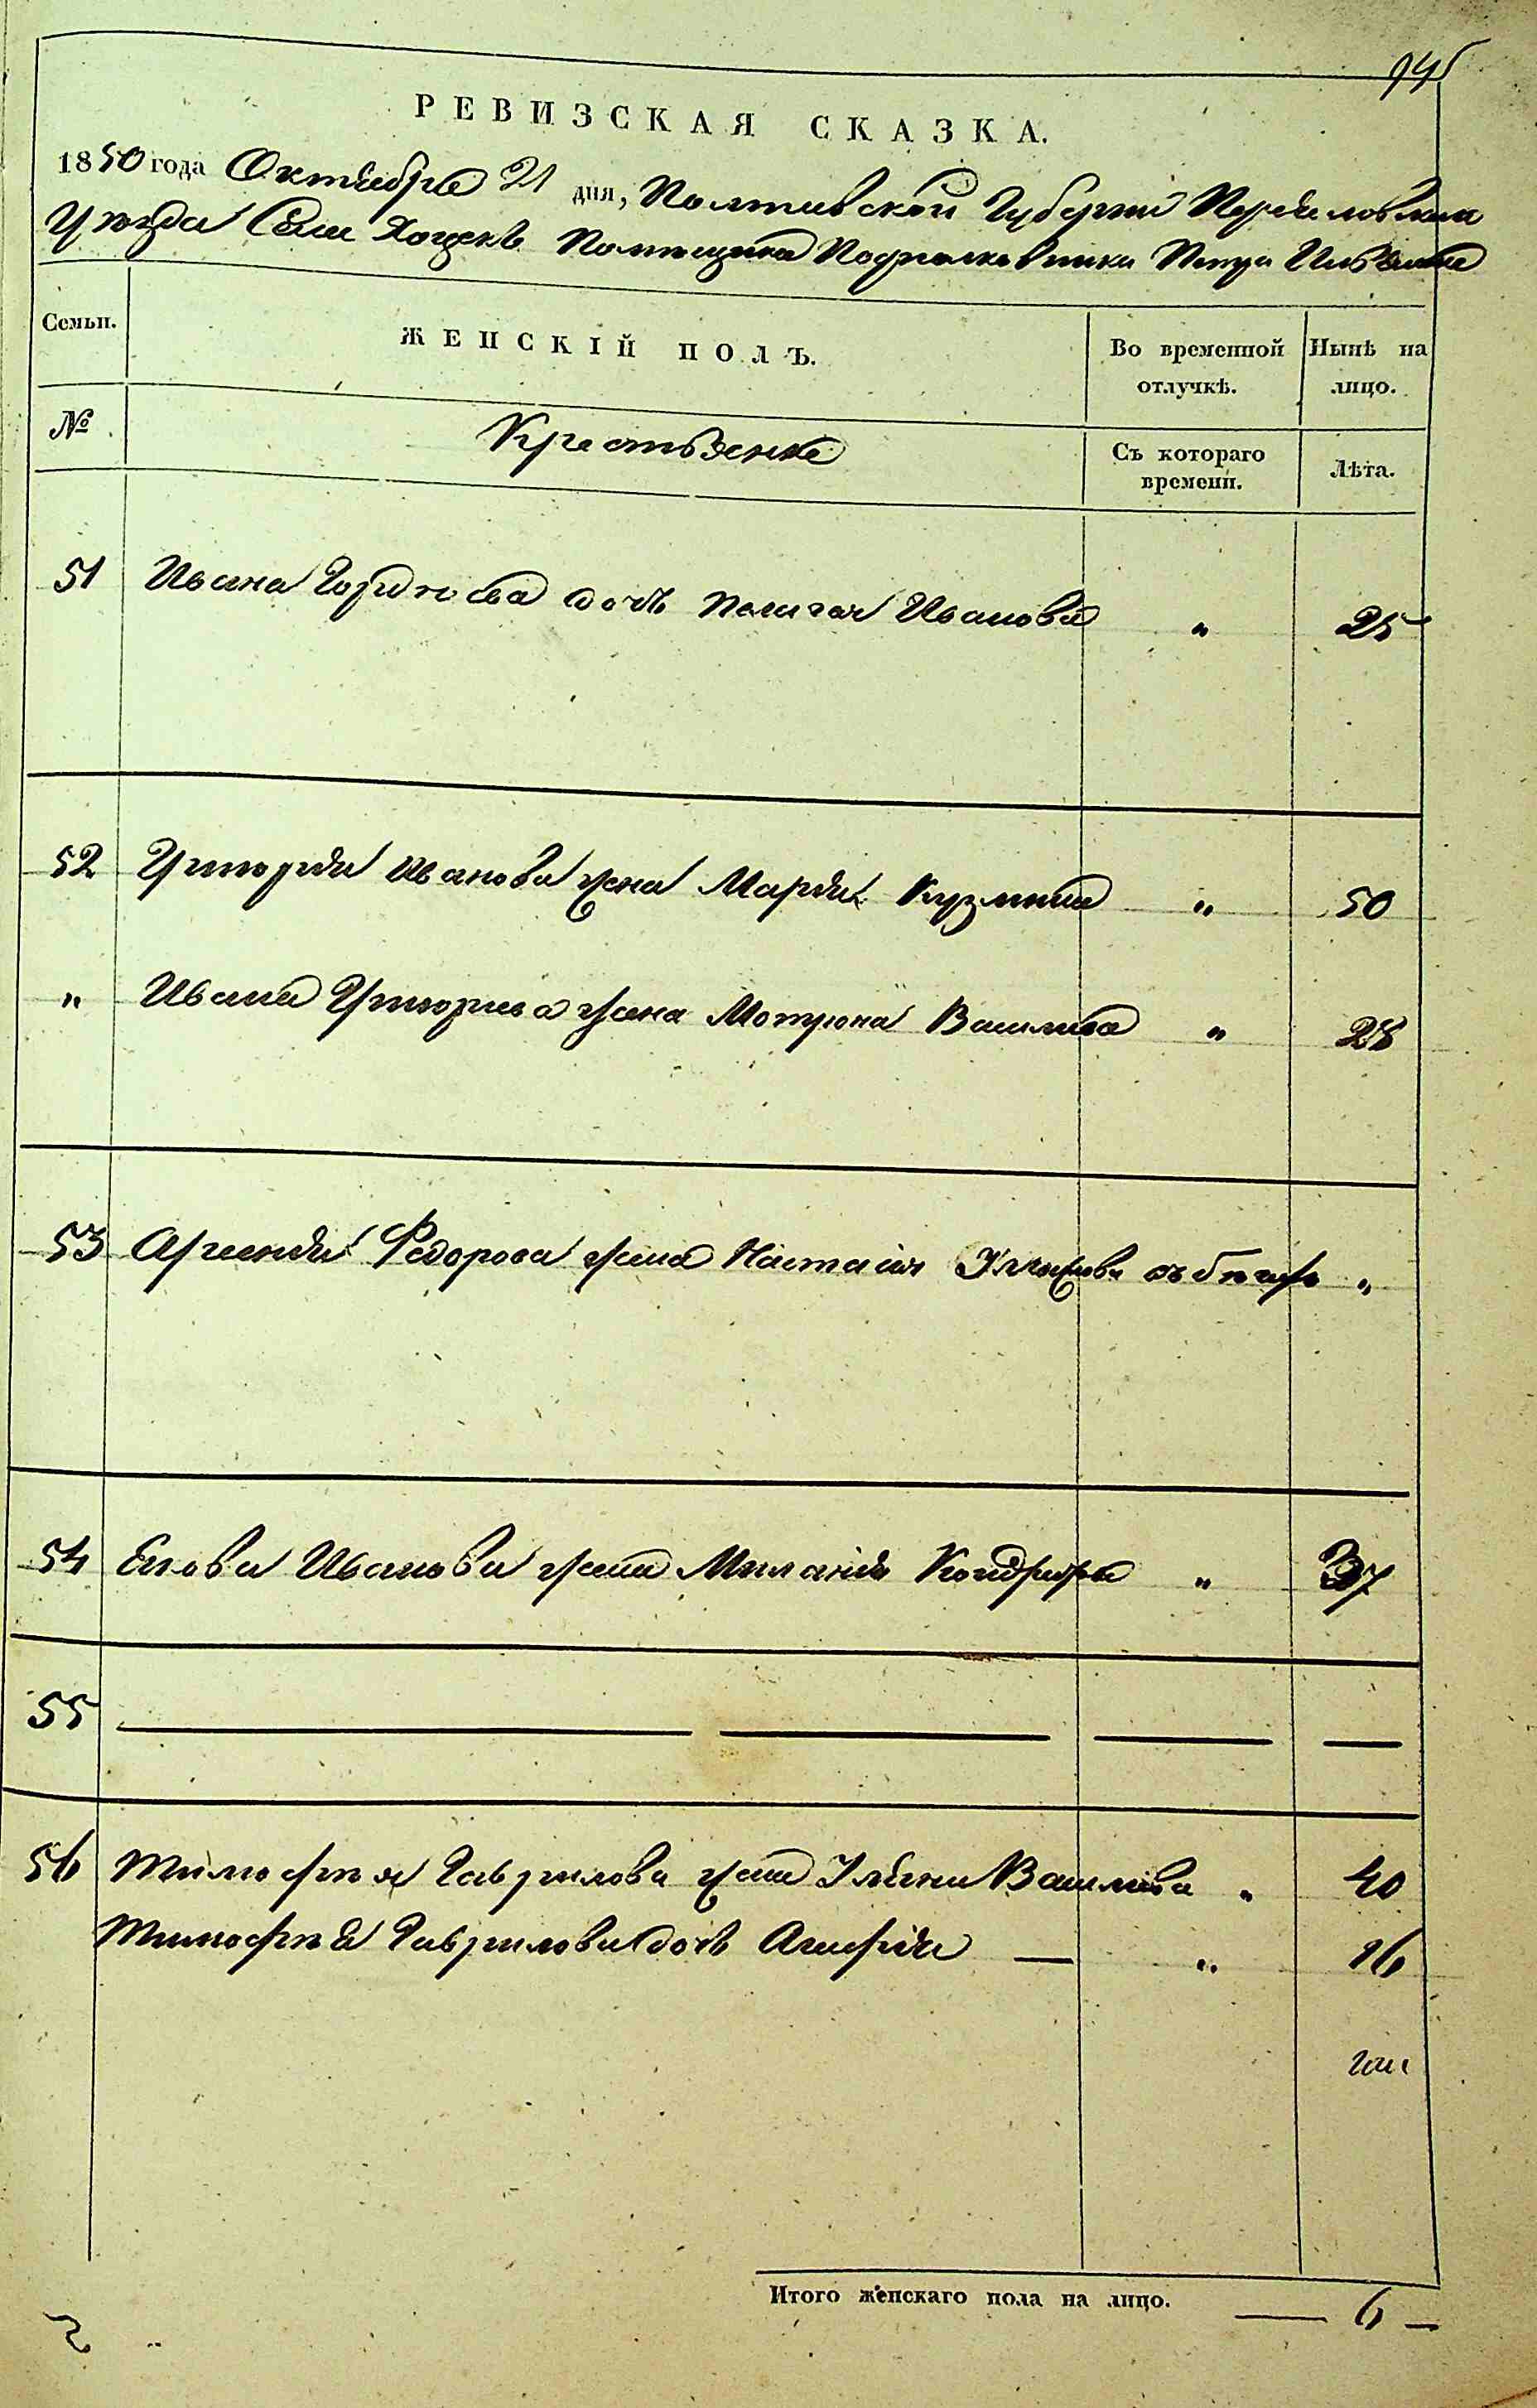 945
РЕВИЗСКАЯ СКАЗКА.
1850 года Октября 21 дня, Полтавской Губернии Переяславскаго
Уѣзда Села Хоцекъ Помѣщика Подполковника Петра
Семьи. ЖЕНСКІЙ ПОЛЪ. Во временной отлучкѣ. Нынѣ на лицо.
№ Крестьянке Съ котораго времени. Лѣта.
51 Ивана Гордѣева дочь Пелагея Иванова " 25
52 Григорія Иванова жена Марія Кузмина " 50
" Ивана Григорьева жена Мотрона Васильева " 28
53 Федорова жена Настасія въ бѣгахъ "
54 Иванова жена Миланія " 37
55 — — — —
56 Тимофѣя Гаврилова жена Ульяна Васильева " 40
Тимофѣя Гаврилова дочь Агафія — " 16
Итого женскаго пола на лицо. — 6 —